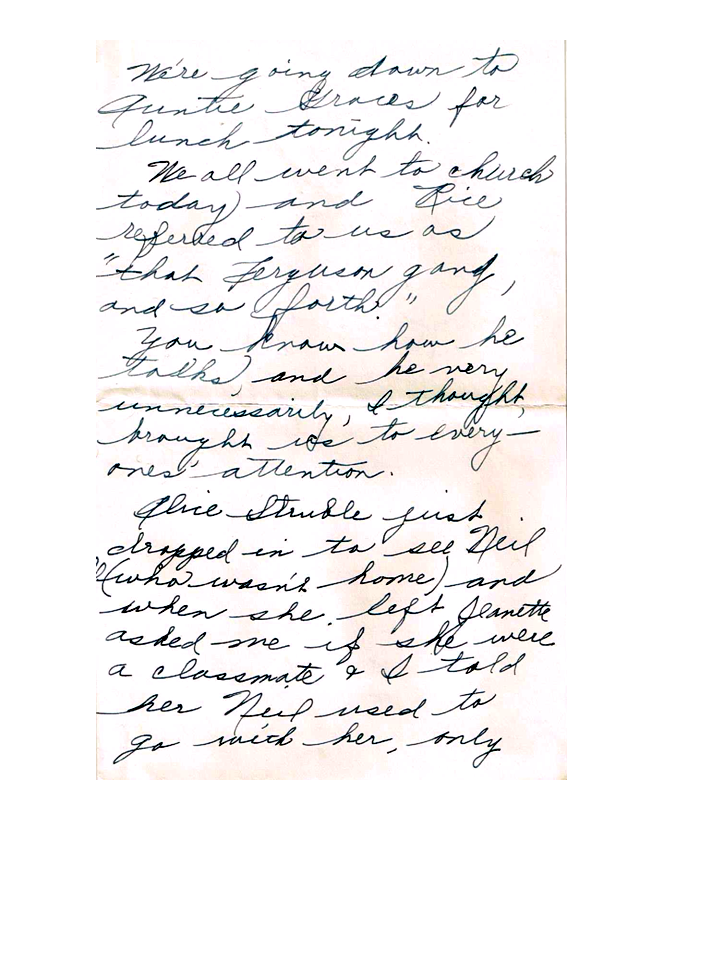 We're going down to
Auntie Graces for
lunch tonight.
We all went to church
today and Rice
referred to us as
"that Ferguson gang,
and so forth."
You know how he
talks, and he very
unnecessarily, I thought,
brought us to every-
ones' attention.
Alice Struble just
dropped in to see Neil
(who wasn't home) and
when she left Jeanette
asked me if she were
a classmate & I told
her Neil used to
go with her, only